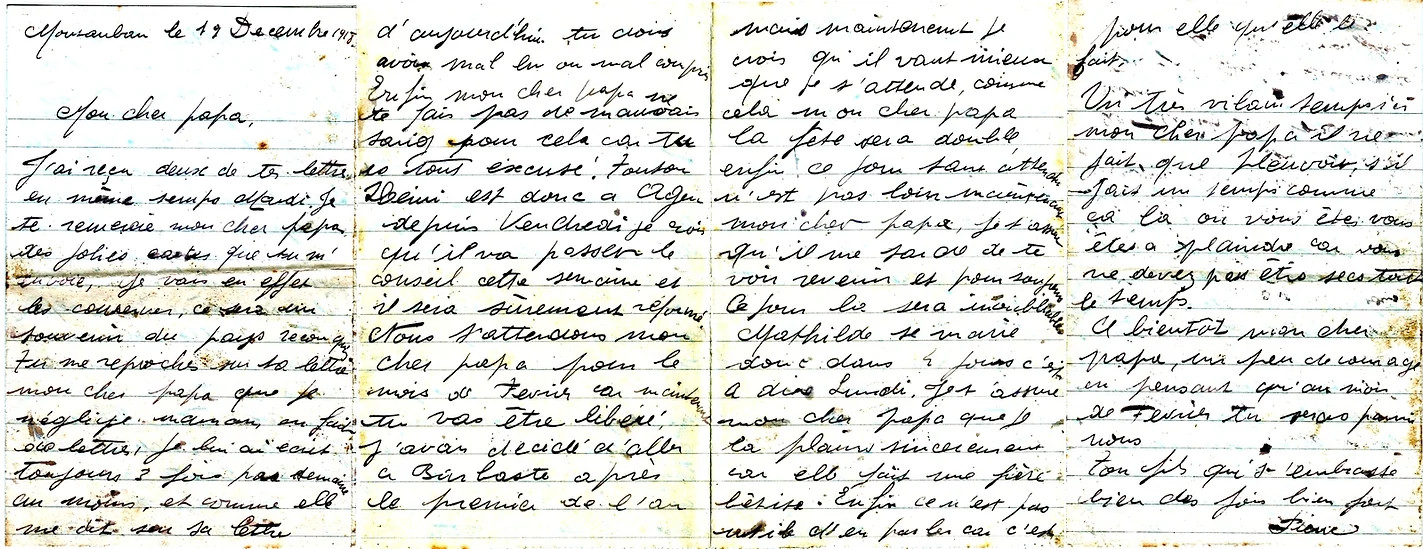 Montauban le 19 Decembre 191
Mon cher papa,
J'ai reçu deux de tes lettres
en même temps Mardi. Je
te remercie mon cher papa,
des jolies cartes que tu m
envoie, je vais en effet
les conserver, ce sera un
souvenir du pays reconquis
Tu me reproches sur ta lettre
mon cher papa que je
néglige maman en fait
de lettres, je lui ai écrit
toujours 3 fois par semaine
au moins, et comme elle
me dit sur sa lettre
d'aujourd'hui tu dois
avoir mal lu ou mal compris
Enfin mon cher papa ne
te fais pas de mauvais
sang pour cela car tu
es tout excusé! Tonton
Rémi est donc a Agen
depuis Vendredi je crois
qu'il va passer le
conseil cette semaine et
il sera sûrement réformé.
Nous t'attendons mon
cher papa pour le
mois de Fevrier car maintenant
tu vas être liberé,
j'avais décidé d'aller
a Barbaste après
le premier de l'an
mais maintenant je
crois qu'il vaut mieux
que je t'attende, comme
cela mon cher papa
la fête sera double
enfin ce jour tant attendu
n'est pas loin maintenant
mon cher papa, je t'assure
qu'il me tarde de te
voir revenir et pour toujours
Ce jour la sera inoubliable
Mathilde se marie
donc dans 2 jours c'est
a dire Lundi. Je t'assure
mon cher Papa que je
la plains sincerement
car elle fait une fière
bêtise! Enfin ce n'est pas
utile d'en parler car c'est
pour elle qu'elle le
fait.
Un très vilain temps ici
mon cher papa il ne
fait que pleuvoir, s'il
fait un temps comme
ça la ou vous êtes vous
êtes a plaindre car vous
ne devez pas être secs tout
le temps.
A bientôt mon cher
papa, un peu de courage
en pensant qu'au mois
de Fevrier tu seras parmi
nous
Ton fils qui t'embrasse
bien des fois bien fort
Pierre